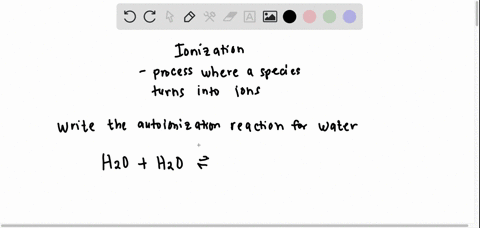 Ionization
- process where a species
turns into ions
Write the autoionization reaction for water
H2O + H2O ⇌